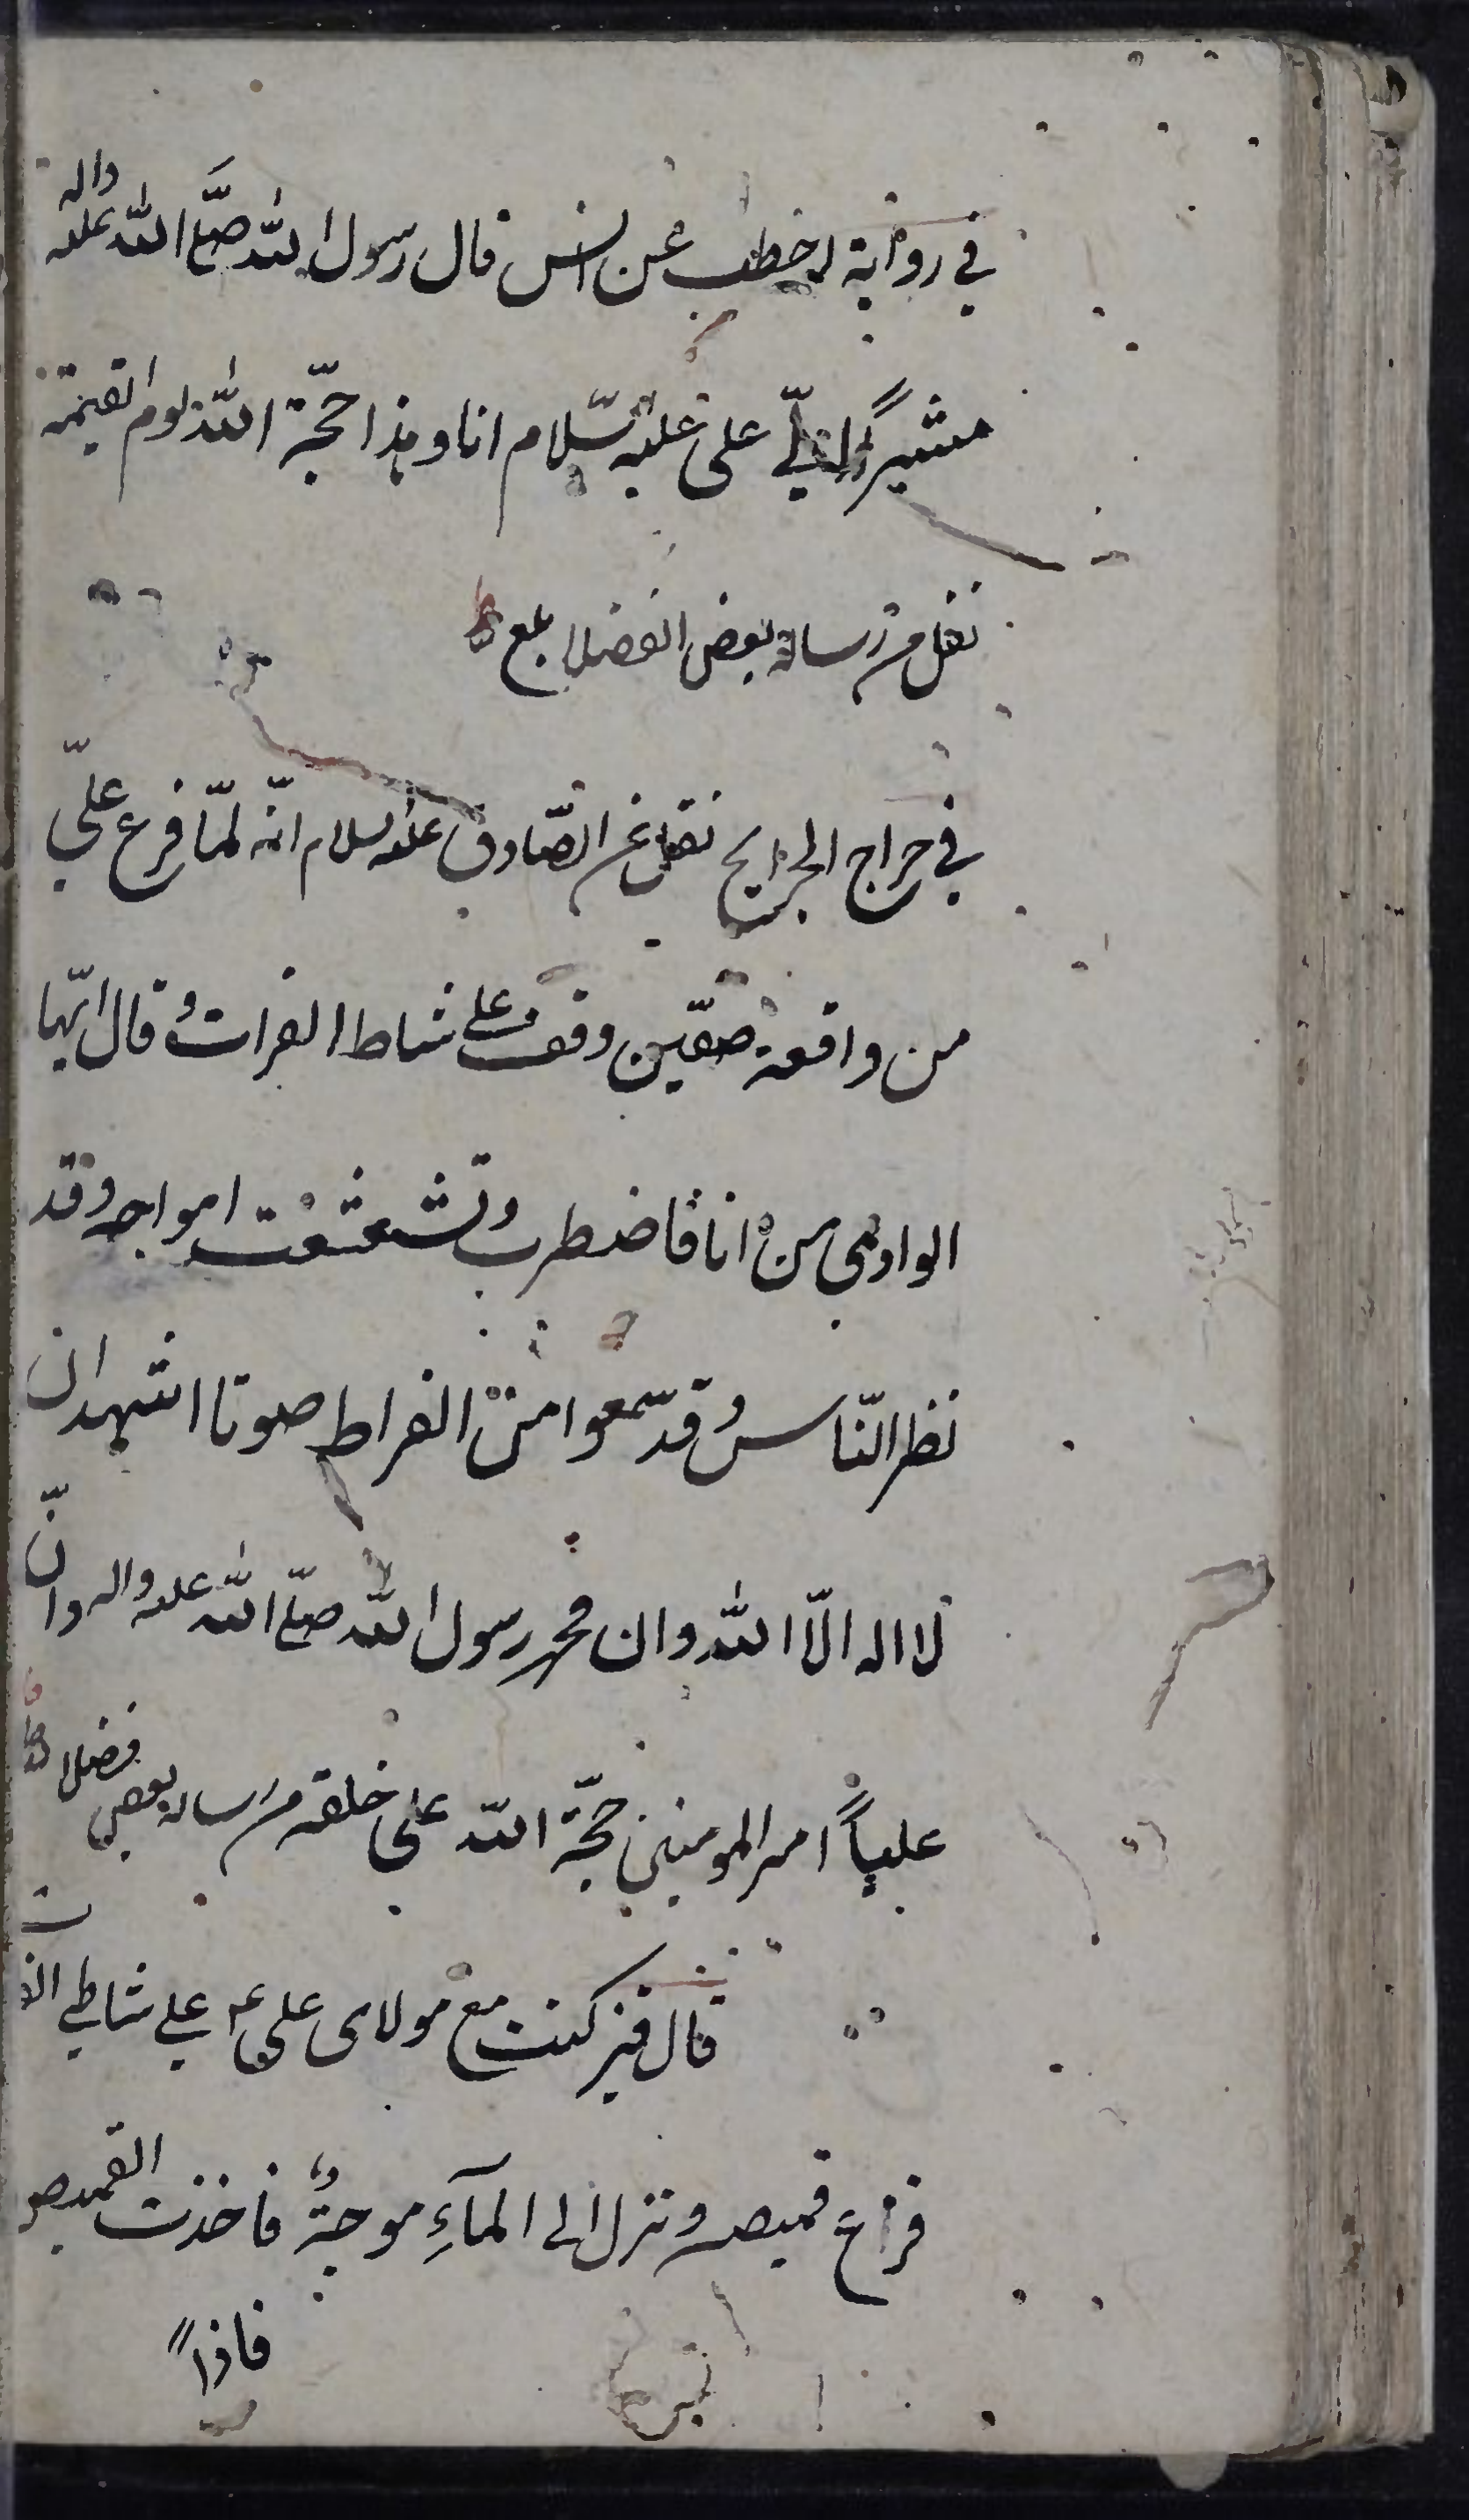 في رواية اخطب عن انس قال رسول الله صلّى الله عليه واله
مشيراً الى علي عليه السّلام انا وهذا حجّة الله يوم القيمة
نقل من رسالة بعض الفضلا
في خراج الجرايح نقل عن الصّادق عليه السلام انّه لمّا فرغ عليّ
من واقعة صفّين وقف على شاط الفرات وقال ايّها
الوادي من انا فاضطرب وتشعثعت امواجه وقد
نظر النّاس وقد سمعوا من الفراط صوتا اشهد ان
لا اله الّا الله وان محمد رسول الله صلّى الله عليه واله وانّ
علياً امير المومنين حجّة الله على خلقه من رساله بعض فضلا
قال قنبر كنت مع مولاى على ع على شاطي الفرات
فنزع قميصه ونزل الى المآءِ موجةٌ فاخذت القميص
فاذا